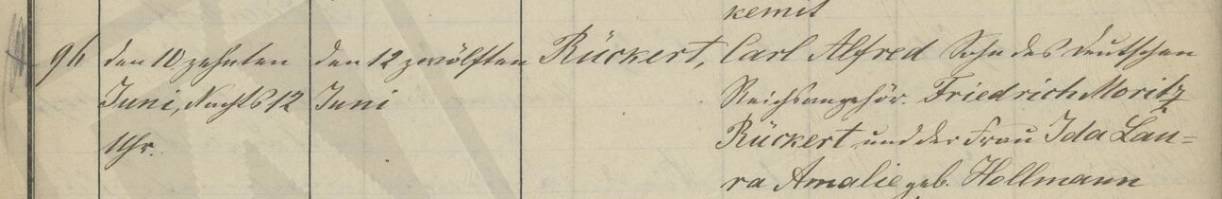 kemit
96 den 10 zehnten den 12 zwölften Rückert, Carl Alfred Sohn des deutschen
Juni, Nachts 12 Juni Reichsangehör. Friedrich Moritz
Uhr. Rückert und der Frau Ida Lau-
ra Amalie geb. Hollmann